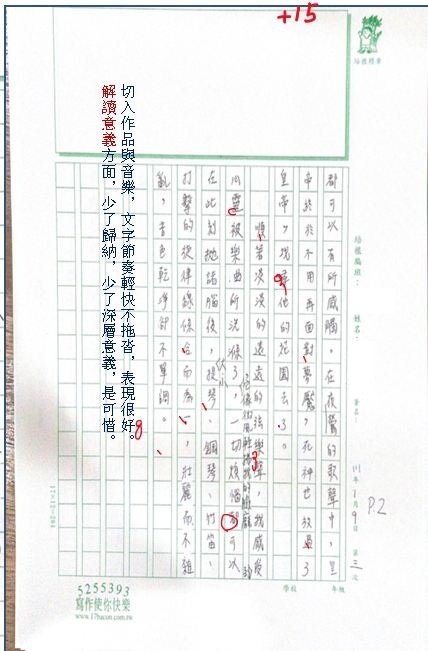 +15
培根標章
都可以有所感觸，在夜鶯的歌聲中，皇
帝終於不用再面對夢魘，死神也放過了
皇帝，找尋他的花園去了。
順著淡淡的遠遠的法樂聲，我感受
心靈被樂曲所洗滌了，一切煩惱都可以
在此刻拋諸腦後，提琴、鋼琴、竹笛、
打擊的旋律線條合而為一，壯麗而不雜
亂，音色乾淨卻不單調。
切入作品與音樂，文字節奏輕快不拖沓，表現很好。
解讀意義方面，少了歸納，少了深層意義，是可惜。
培根編班：
姓名：
簽名：
111年1月9日
第三次
P.2
學校
年級
5255393
寫作使你快樂
www.17bacon.com.tw